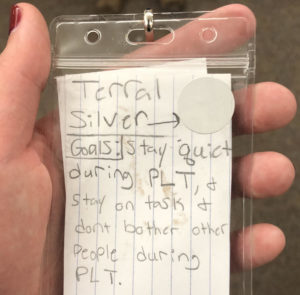 Terral
Silver →
Goals: Stay quiet
during PLT, &
stay on task &
dont bother other
people during
PLT.